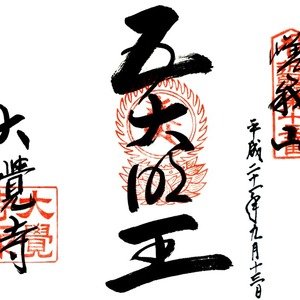 嵯峨山
平成二十一年九月十三日
五大明王
大覺寺
大覺